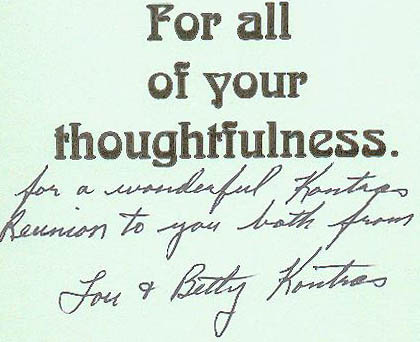 For all
of your
thoughtfulness.
for a wonderful Kontras
Reunion to you both from
Lou & Betty Kontras